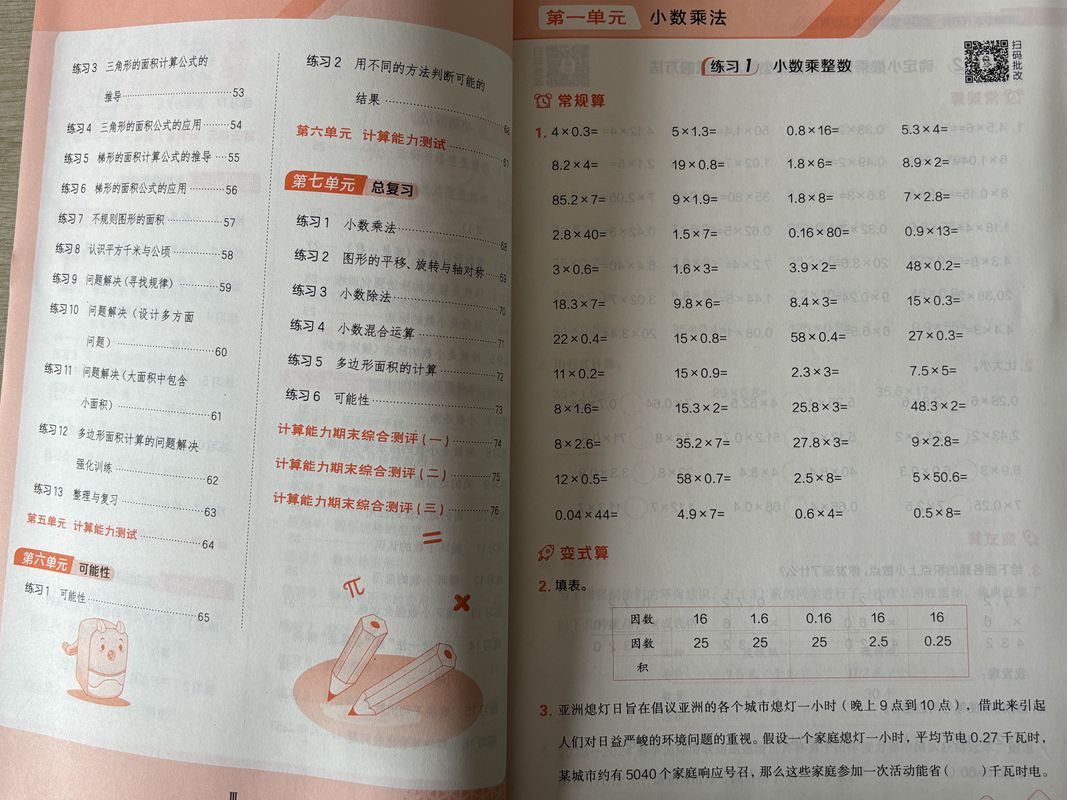 练习3 三角形的面积计算公式的
推导 53
练习4 三角形的面积公式的应用 54
练习5 梯形的面积计算公式的推导 55
练习6 梯形的面积公式的应用 56
练习7 不规则图形的面积 57
练习8 认识平方千米与公顷 58
练习9 问题解决(寻找规律) 59
练习10 问题解决(设计多方面
问题) 60
练习11 问题解决(大面积中包含
小面积) 61
练习12 多边形面积计算的问题解决
强化训练 62
练习13 整理与复习 63
第五单元 计算能力测试 64
第六单元 可能性
练习1 可能性 65
练习2 用不同的方法判断可能的
结果 66
第六单元 计算能力测试 67
第七单元 总复习
练习1 小数乘法 68
练习2 图形的平移、旋转与轴对称 69
练习3 小数除法 70
练习4 小数混合运算 71
练习5 多边形面积的计算 72
练习6 可能性 73
计算能力期末综合测评(一) 74
计算能力期末综合测评(二) 75
计算能力期末综合测评(三) 76
III
第一单元 小数乘法
练习1 小数乘整数
扫码批改
常规算
1. 4×0.3= 5×1.3= 0.8×16= 5.3×4=
8.2×4= 19×0.8= 1.8×6= 8.9×2=
85.2×7= 9×1.9= 1.8×8= 7×2.8=
2.8×40= 1.5×7= 0.16×80= 0.9×13=
3×0.6= 1.6×3= 3.9×2= 48×0.2=
18.3×7= 9.8×6= 8.4×3= 15×0.3=
22×0.4= 15×0.8= 58×0.4= 27×0.3=
11×0.2= 15×0.9= 2.3×3= 7.5×5=
8×1.6= 15.3×2= 25.8×3= 48.3×2=
8×2.6= 35.2×7= 27.8×3= 9×2.8=
12×0.5= 58×0.7= 2.5×8= 5×50.6=
0.04×44= 4.9×7= 0.6×4= 0.5×8=
变式算
2. 填表。
因数 16 1.6 0.16 16 16
因数 25 25 25 2.5 0.25
积
3. 亚洲熄灯日旨在倡议亚洲的各个城市熄灯一小时(晚上9点到10点),借此来引起
人们对日益严峻的环境问题的重视。假设一个家庭熄灯一小时,平均节电0.27千瓦时,
某城市约有5040个家庭响应号召,那么这些家庭参加一次活动能省( )千瓦时电。